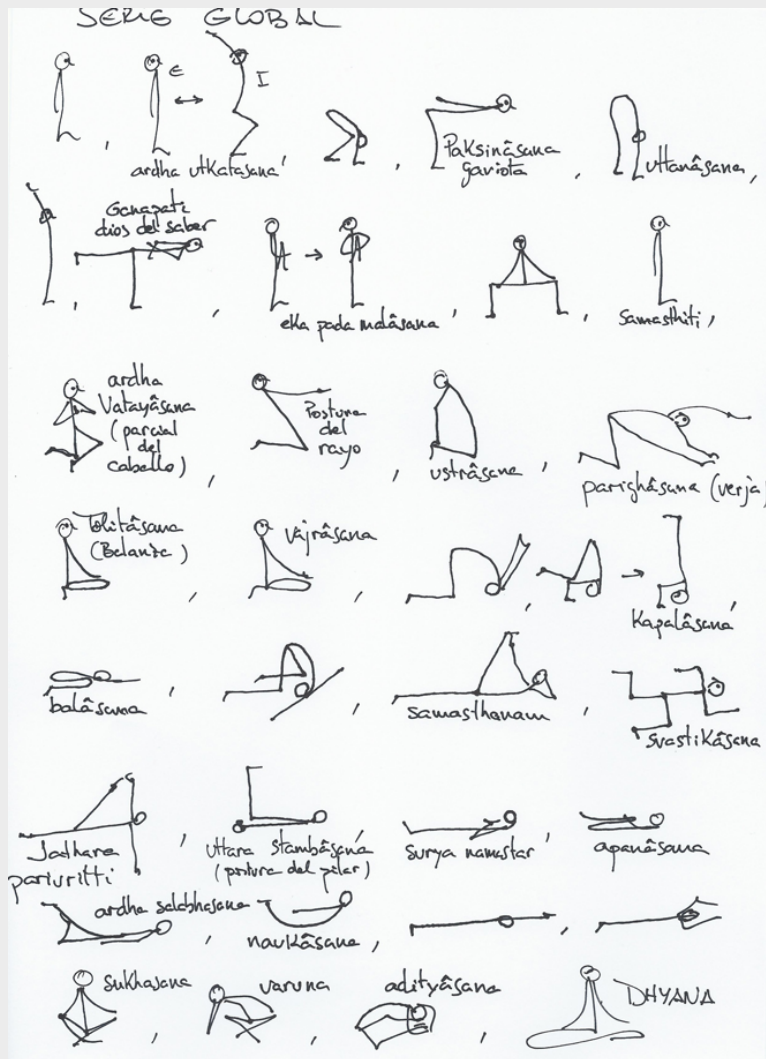 SERIE GLOBAL
E
I
ardha utkatasana,
Paksinâsana
gaviota
uttanâsana,
Ganapati
dios del saber
eka pada malâsana
samasthiti,
ardha
Vatayâsana
(parcial
del
caballo)
Postura
del
rayo
ustrâsana
parighâsana (verja)
Tolitâsana
(Balanza)
vajrâsana
Kapalâsana
balâsana
samasthanam
svastikâsana
Jathara
parivritti
uttara stambâsana
(postura del pilar)
surya namaskar
apanâsana
ardha salabhasana
navkâsana,
sukhasana
varuna
adityâsana
DHYANA